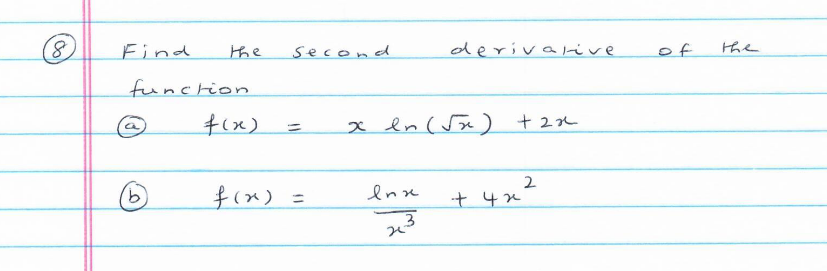 ⑧ Find the second derivative of the
function
ⓐ f(x) = x ln(√x) + 2x
ⓑ f(x) = lnx/x³ + 4x²